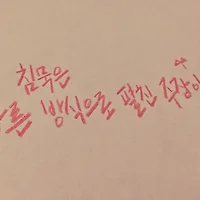 침묵은
른 방식으로 펼친 주장이